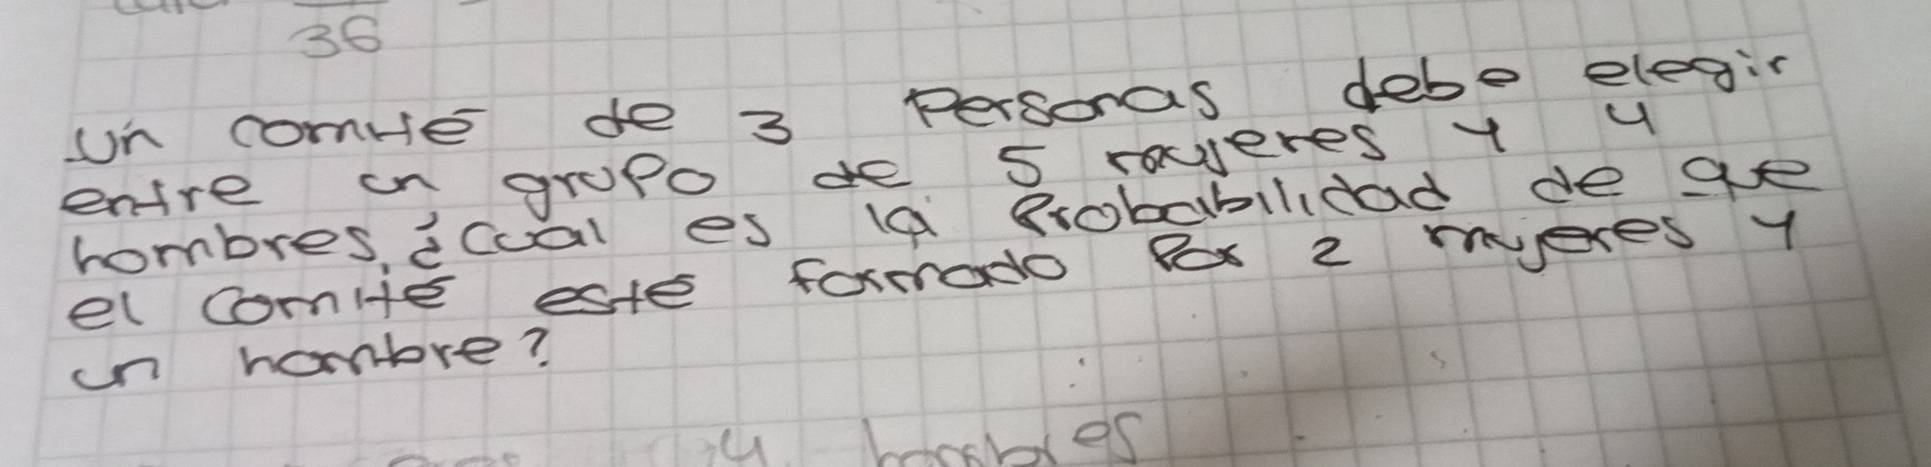 36
Un comité de 3 Personas debe elegir
entre un grupo de 5 mujeres y 4
hombres, ¿Cual es la Probabilidad de que
el comité esté formado Por 2 mujeres y
un hombre?
4 hombres